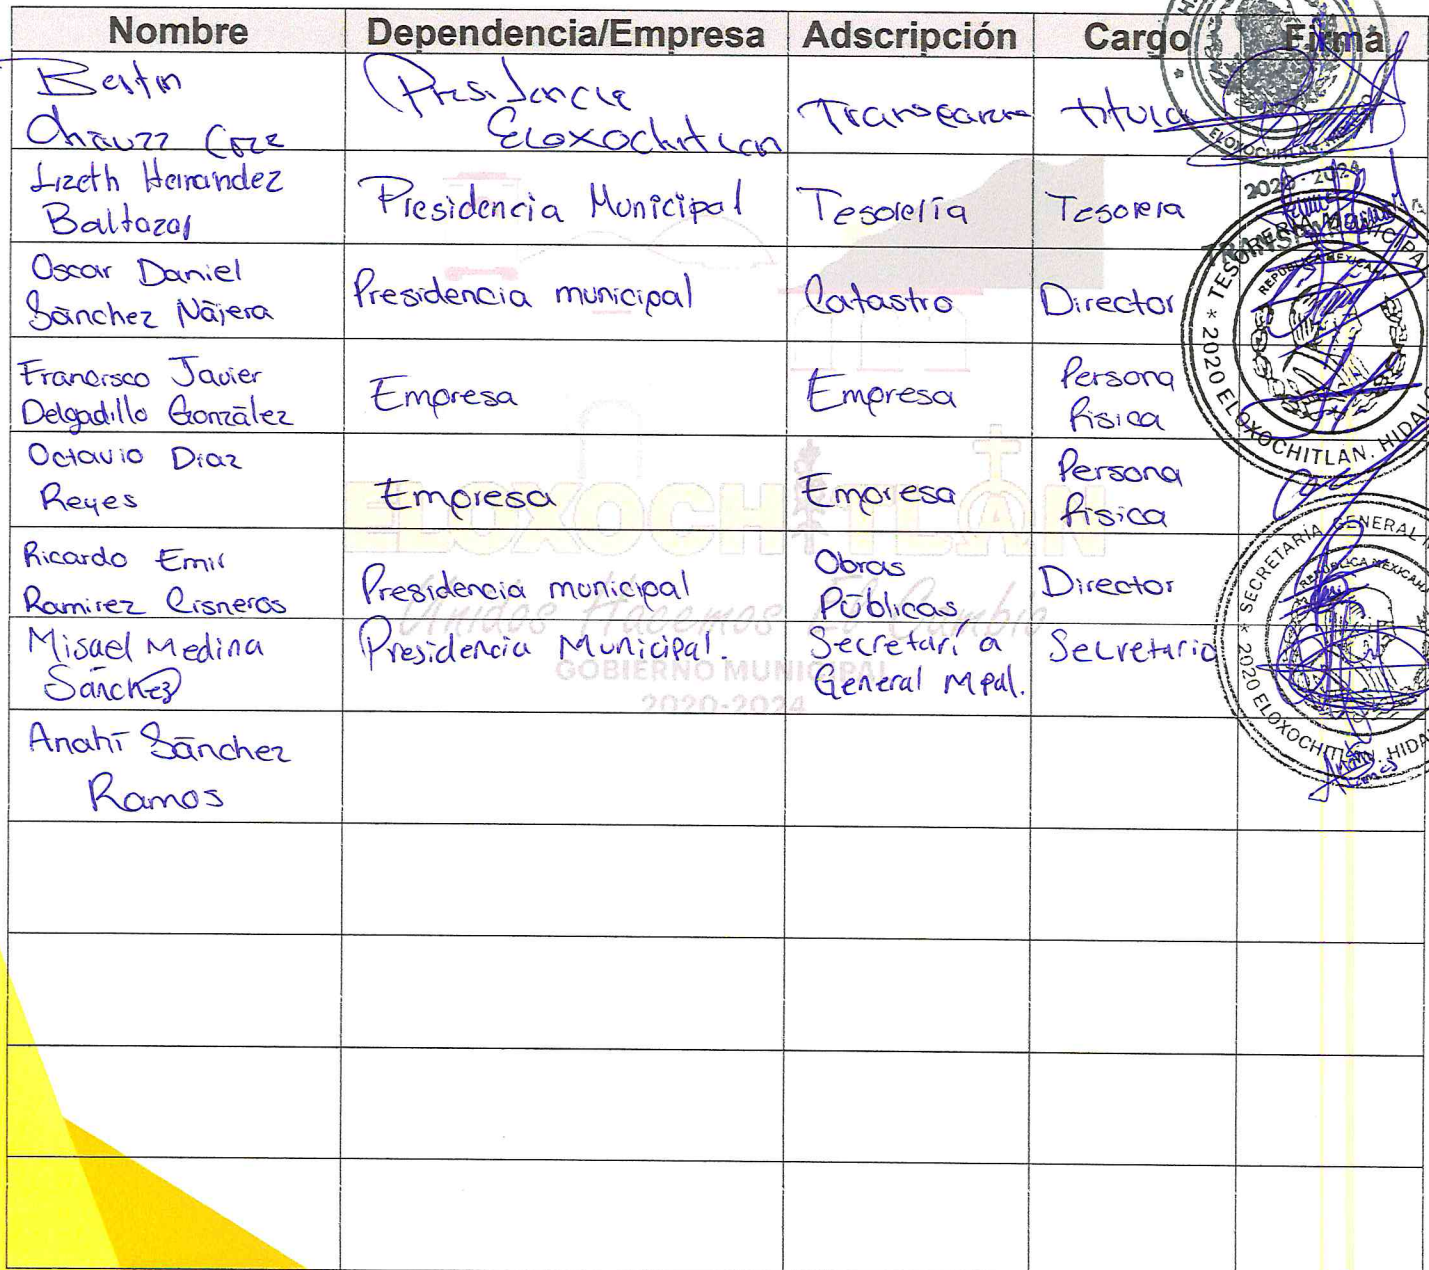 Nombre Dependencia/Empresa Adscripción Cargo Firma
Presidencia
Eloxochitlan
Lizeth Hernandez
Baltazar
Presidencia Municipal
Tesorería
Tesorera
Oscar Daniel
Sánchez Nájera
Presidencia municipal
Catastro
Director
Francisco Javier
Delgadillo González
Empresa
Empresa
Persona
física
Octavio Díaz
Reyes
Empresa
Empresa
Persona
física
Ricardo Emir
Ramirez Cisneros
Presidencia municipal
Obras
Públicas
Director
Misael Medina
Sánchez
Presidencia Municipal.
Secretaría
General Mpal.
Secretario
Anahí Sánchez
Ramos
ELOXOCHITLÁN
Unidos Hacemos El Cambio
GOBIERNO MUNICIPAL
2020-2024
ELOXOCHITLAN,
2020-2024
TESORERÍA MUNICIPAL
REPUBLICA MEXICANA
* 2020 ELOXOCHITLAN, HIDALGO
SECRETARÍA GENERAL
REPUBLICA MEXICANA
* 2020 ELOXOCHITLAN, HIDALGO